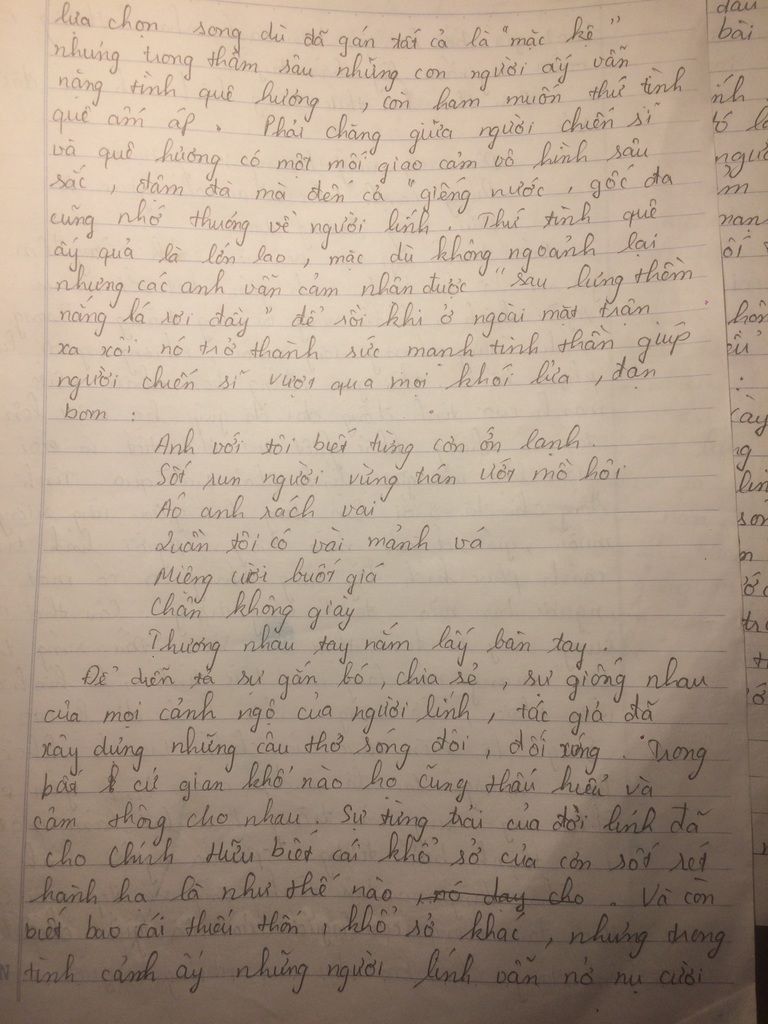 lựa chọn song dù đã gán tất cả là "mặc kệ"
nhưng trong thẳm sâu những con người ấy vẫn
nặng tình quê hương, còn ham muốn thứ tình
quê ấm áp. Phải chăng giữa người chiến sĩ
và quê hương có một mối giao cảm vô hình sâu
sắc, đâm đà mà đến cả "giếng nước, gốc đa
cũng nhớ thương về người lính. Thứ tình quê
ấy quả là lớn lao, mặc dù không ngoảnh lại
nhưng các anh vẫn cảm nhận được "sau lưng thềm
nắng lá rơi đầy" để rồi khi ở ngoài mặt trận
xa xôi nó trở thành sức mạnh tinh thần giúp
người chiến sĩ vượt qua mọi khói lửa, đạn
bom :
Anh với tôi biết từng cơn ớn lạnh.
Sốt run người vừng trán ướt mồ hôi
Áo anh rách vai
Quần tôi có vài mảnh vá
Miệng cười buốt giá
Chân không giày
Thương nhau tay nắm lấy bàn tay.
Để diễn tả sự gắn bó, chia sẻ, sự giống nhau
của mọi cảnh ngộ của người lính, tác giả đã
xây dựng những câu thơ sóng đôi, đối xứng. Trong
bất cứ gian khổ nào họ cũng thấu hiểu và
cảm thông cho nhau. Sự từng trải của đời lính đã
cho Chính Hữu biết cái khổ sở của cơn sốt rét
hành hạ là như thế nào nó day cho. Và còn
biết bao cái thiếu thốn, khổ sở khác, nhưng trong
tình cảnh ấy những người lính vẫn nở nụ cười